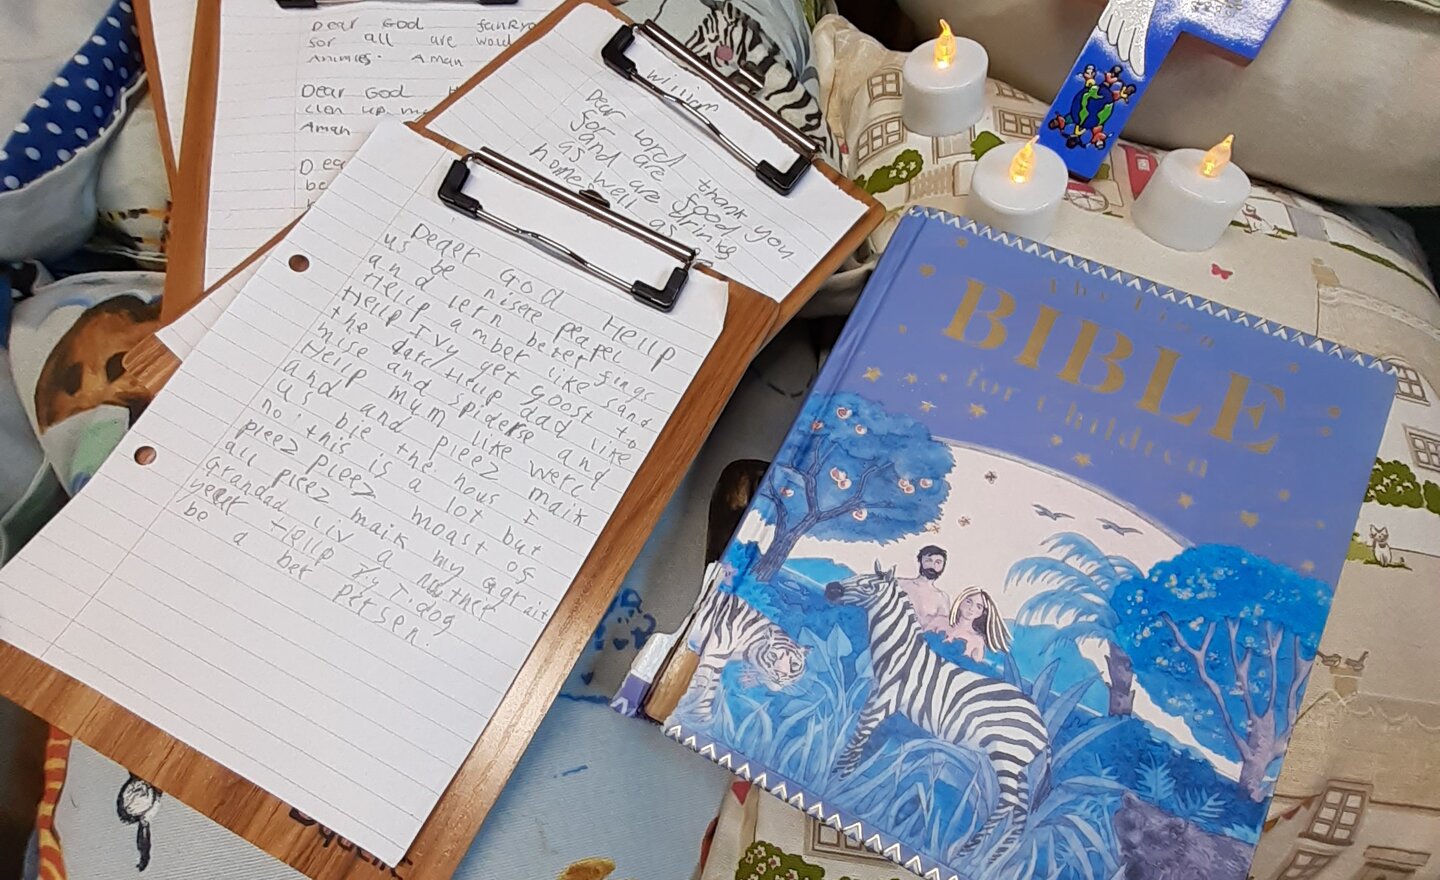 Dear God fankyo
for all are wold
Animles. Aman
Dear God
clen up
Aman
Dea
be
William
Dear Lord thank you
for are food
and are drinke
as well as
home
Deaer God Hellp
us be nisere peapel
and lern beter fings
Hellp amber like sand
Hellp Ivy get goost to
the darck Hellp dad like
mise and spiderse and
Hellp mum like werc
us and pleez maik
noi ble the hous I
no this is a lot but
pleez pleez moast of
all pleez maik my grait
Grandad liv a nuther
yeer Hellp Ty T.dog
be a beter persen
The Lion
BIBLE
for Children